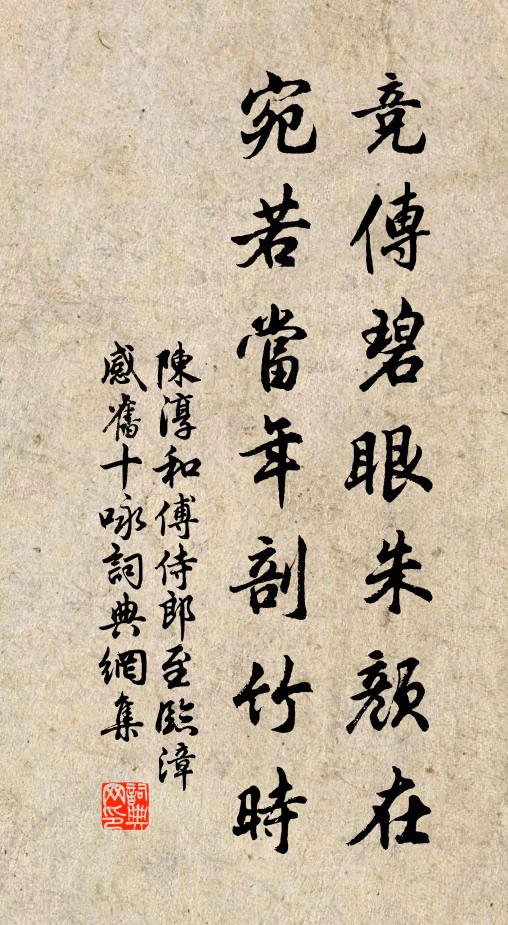 竞傳碧眼朱顏在
宛若當年剖竹時
陳淳和傅侍郎至臨漳
感舊十咏詞典網集
詞典网印